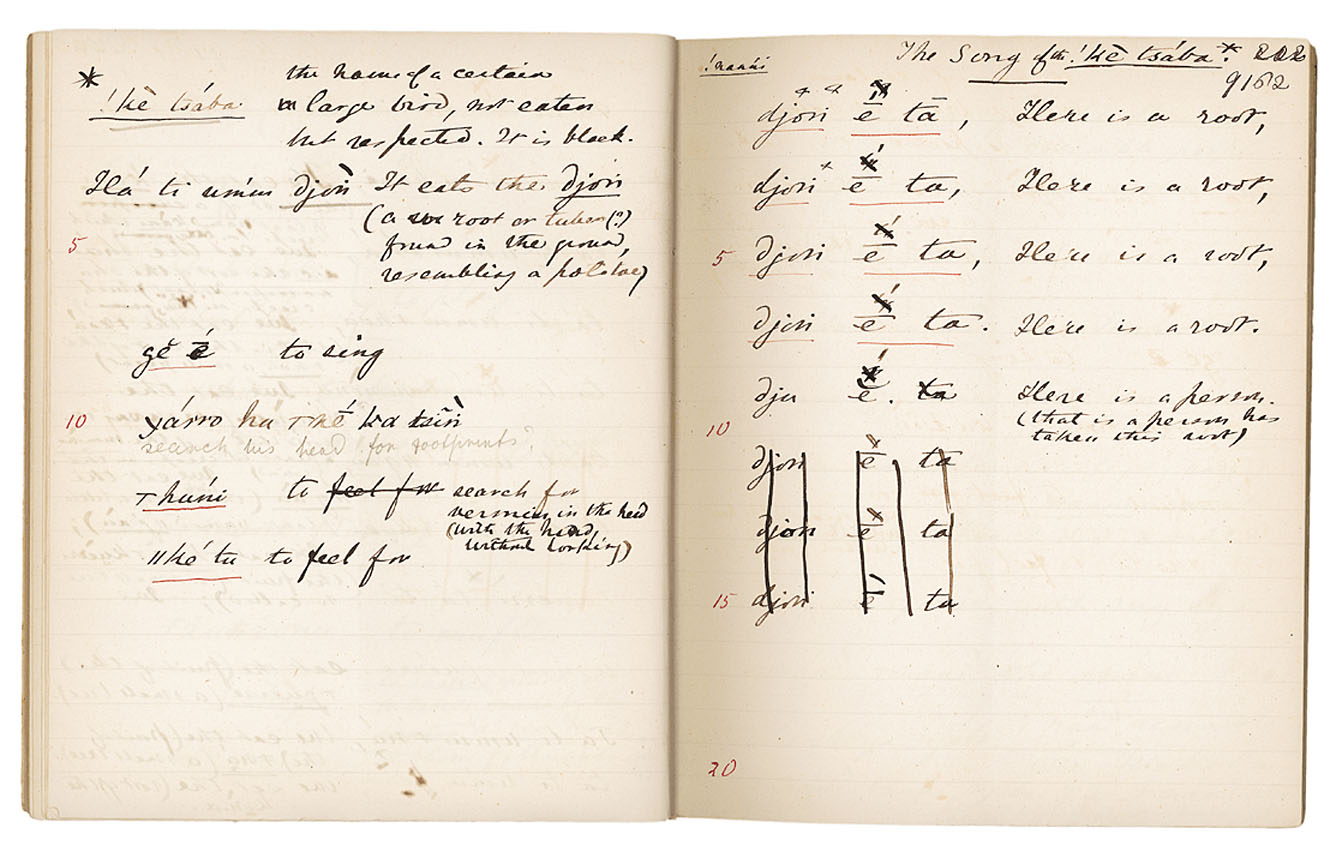 *
!kē tsába the name of a certain
large bird, not eaten
but respected. It is black.
Há ti umm djori It eats the djori
(a root or tuber (?)
5 found in the ground,
resembling a potatoe)
gĕ é to sing
10 hа̄ ka
search his head for footprints?
huni to feel for search for
vermin in the head
(with the hand,
without looking)
ǁké tu to feel for
!nanni The Song of the !kē tsába.* 222
9162
djori é tā, Here is a root,
djori é ta, Here is a root,
5 djori é ta, Here is a root,
djori é ta. Here is a root.
dju é. ta Here is a person.
10 (that is a person has
taken this root)
djori é ta
djori é ta
15 djori é ta
20